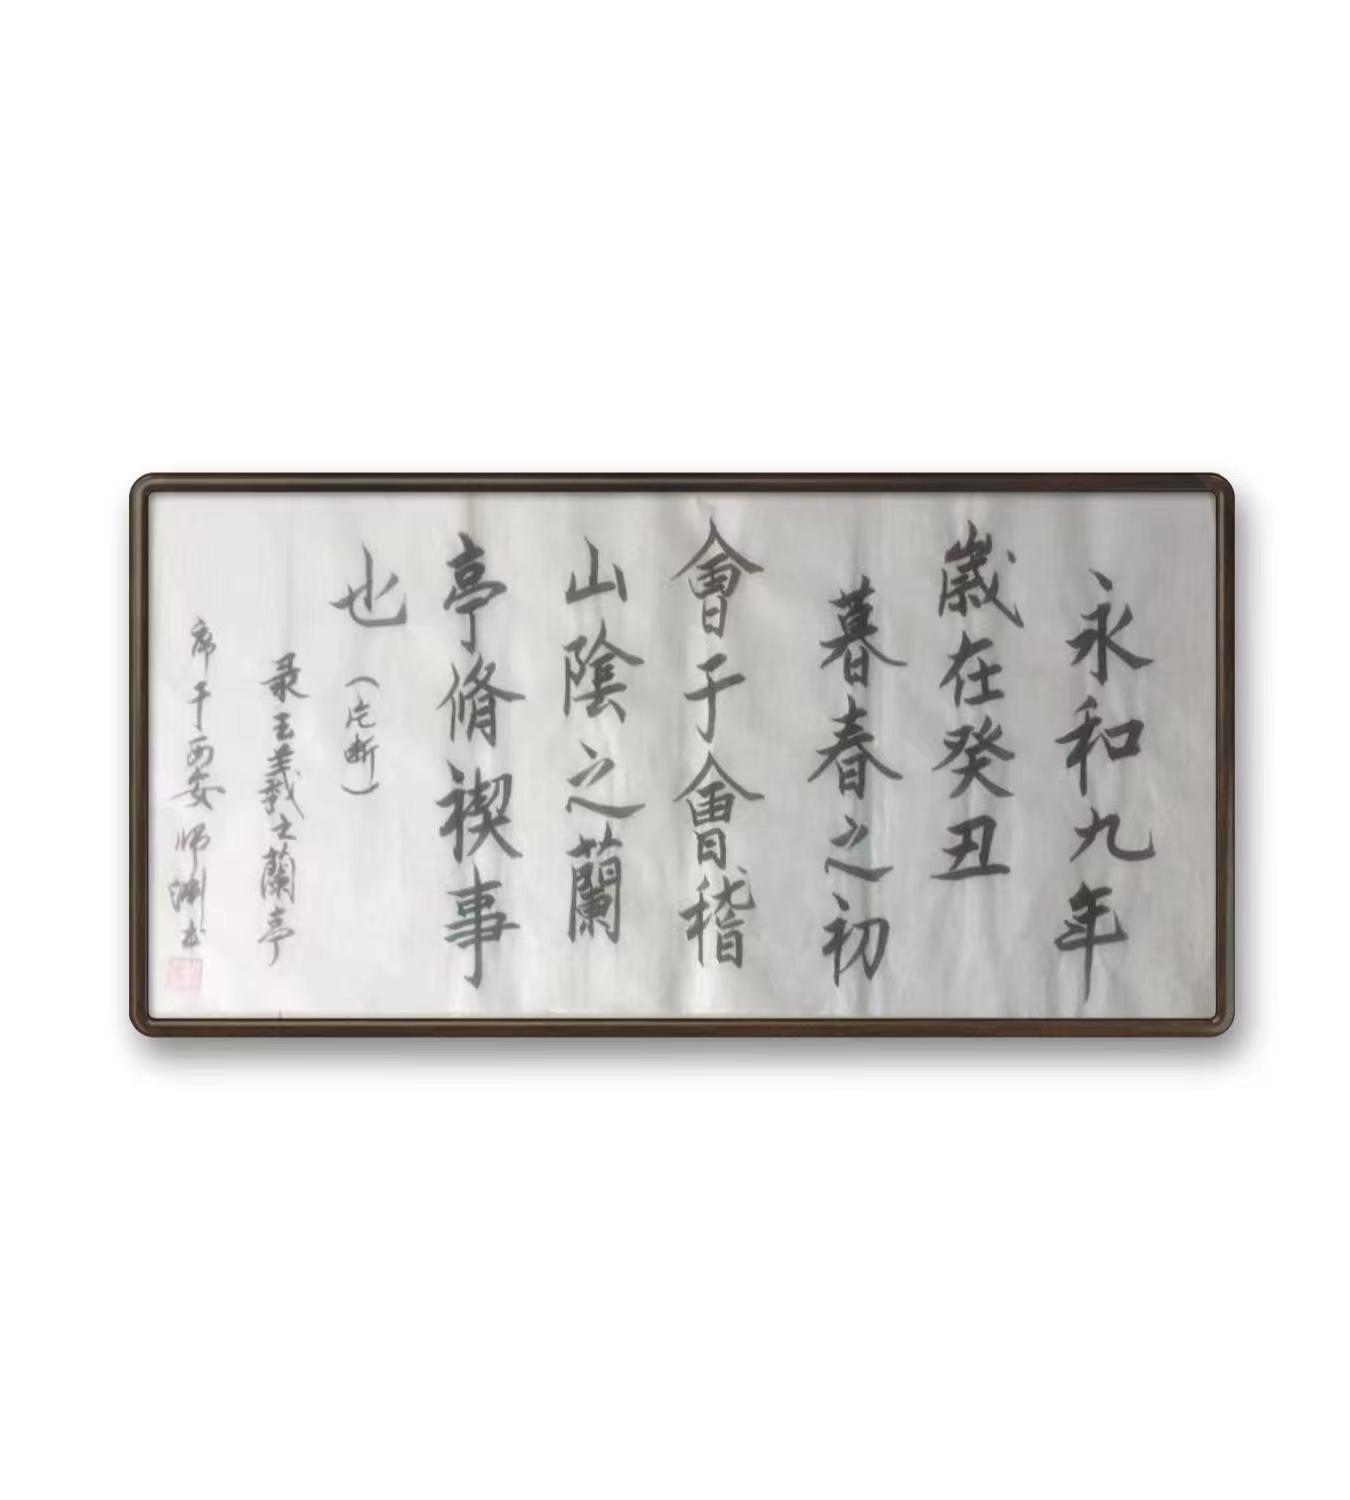 永和九年
歲在癸丑
暮春之初
會于會稽
山陰之蘭
亭脩禊事
也（片断）
录王羲之蘭亭
序于西安师渊书